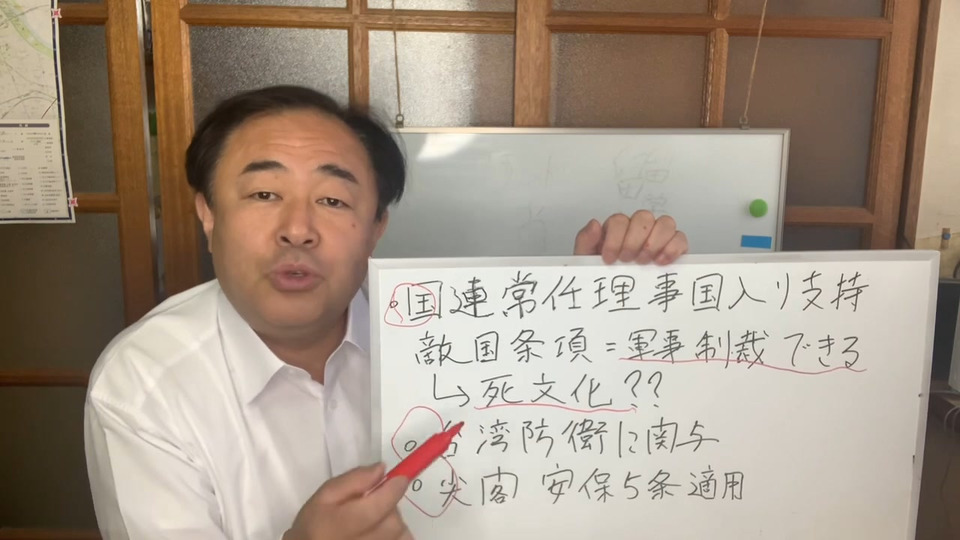 ○国連常任理事国入り支持
敵国条項=軍事制裁できる
↳死文化??
○台湾防衛に関与
○尖閣 安保5条適用